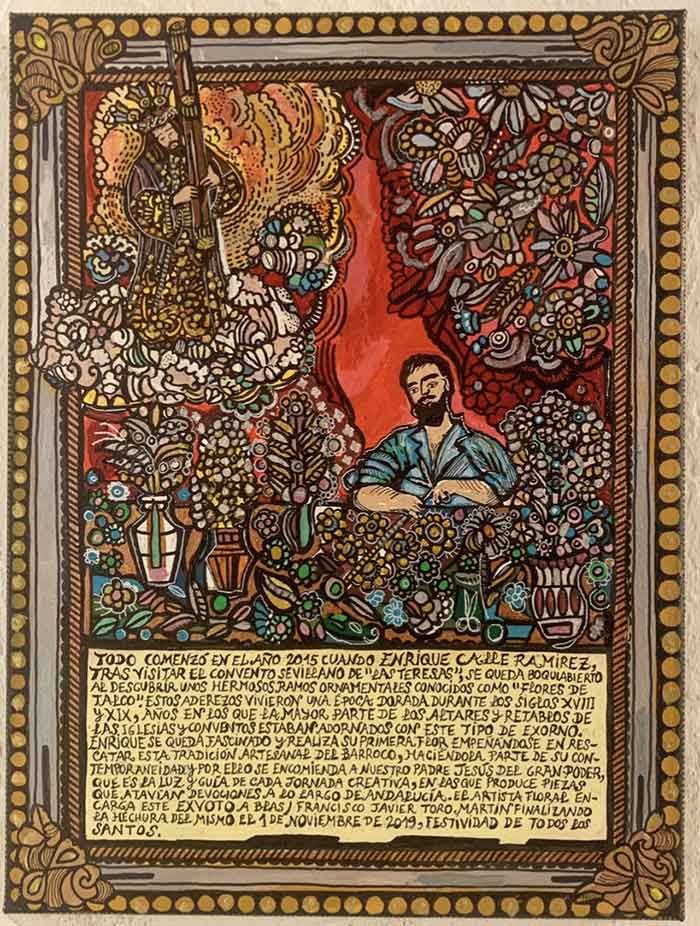 TODO COMENZÓ EN EL AÑO 2015 CUANDO ENRIQUE CALLE RAMIREZ,
TRAS VISITAR EL CONVENTO SEVILLANO DE "LAS TERESAS", SE QUEDA BOQUIABIERTO
AL DESCUBRIR UNOS HERMOSOS RAMOS ORNAMENTALES CONOCIDOS COMO "FLORES DE
TALCO". ESTOS ADEREZOS VIVIERON UNA ÉPOCA DORADA DURANTE LOS SIGLOS XVIII
Y XIX, AÑOS EN LOS QUE LA MAYOR PARTE DE LOS ALTARES Y RETABLOS DE
LAS IGLESIAS Y CONVENTOS ESTABAN ADORNADOS CON ESTE TIPO DE EXORNO.
ENRIQUE SE QUEDA FASCINADO Y REALIZA SU PRIMERA FLOR EMPEÑANDOSE EN RES-
CATAR ESTA TRADICIÓN ARTESANAL DEL BARROCO, HACIÉNDOLA PARTE DE SU CON-
TEMPORANEIDAD Y POR ELLO SE ENCOMIENDA A NUESTRO PADRE JESÚS DEL GRAN PODER,
QUE ES LA LUZ Y GUÍA DE CADA JORNADA CREATIVA, EN LAS QUE PRODUCE PIEZAS
QUE ATAVIAN DEVOCIONES A LO LARGO DE ANDALUCÍA. EL ARTISTA FLORAL EN-
CARGA ESTE EXVOTO A BLAS, FRANCISCO JAVIER TORO MARTIN FINALIZANDO
LA HECHURA DEL MISMO EL 1 DE NOVIEMBRE DE 2019, FESTIVIDAD DE TODOS LOS
SANTOS.